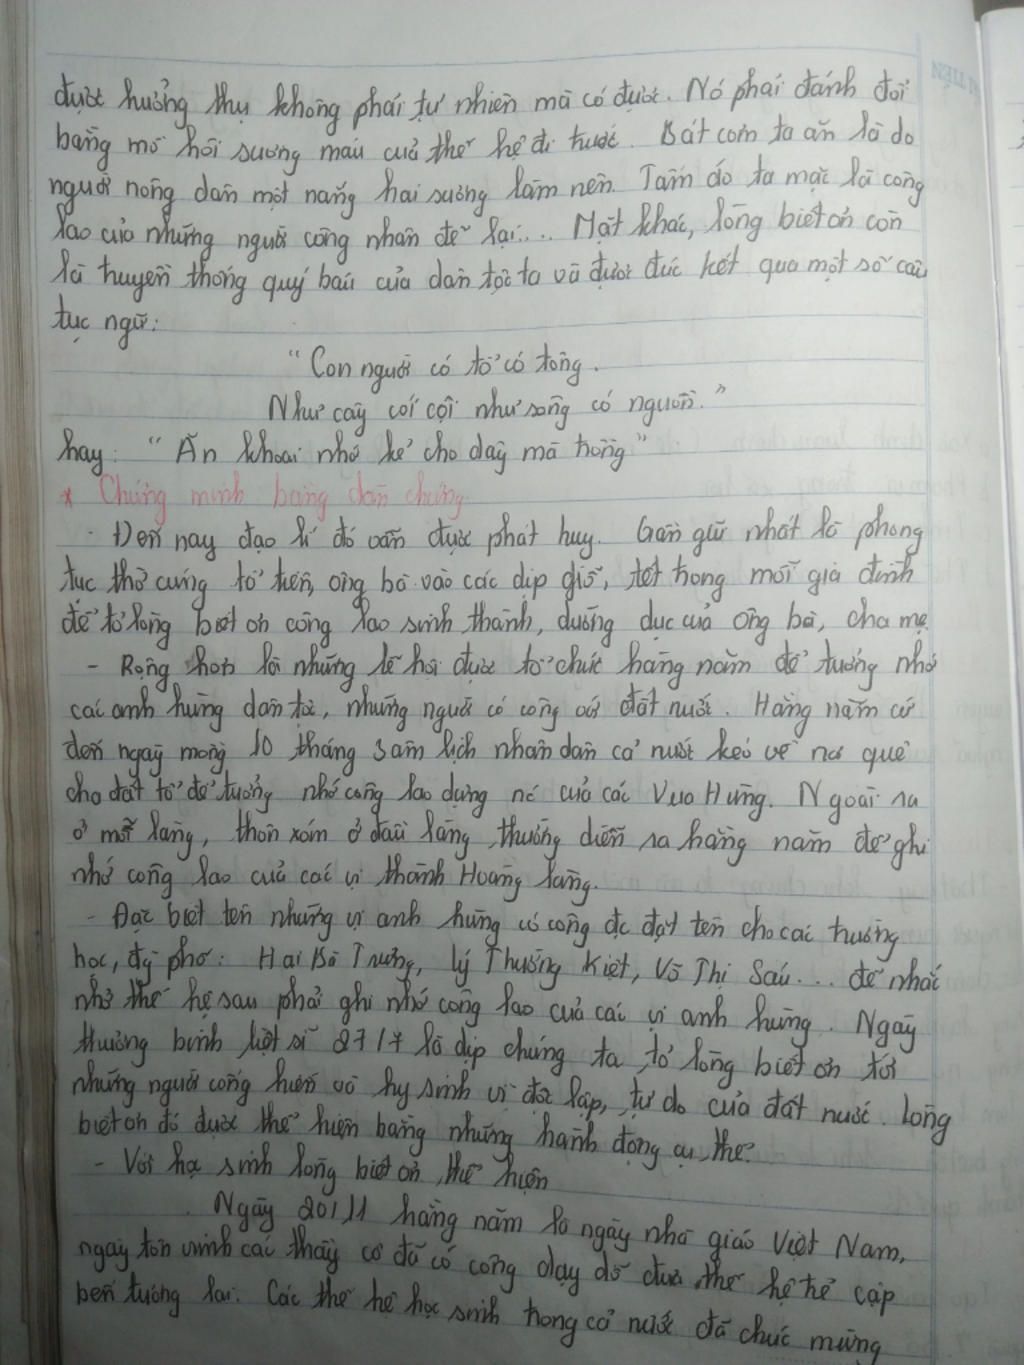 được hưởng thụ không phải tự nhiên mà có được. Nó phải đánh đổi
bằng mồ hôi sương máu của thế hệ đi trước. Bát cơm ta ăn là do
người nông dân một nắng hai sương làm nên. Tấm áo ta mặc là công
lao của những người công nhân để lại... Mặt khác, lòng biết ơn còn
là truyền thống quý báu của dân tộc ta và được đúc kết qua một số câu
tục ngữ:
"Con người có tổ có tông.
Như cây cối cội như sông có nguồn."
hay: "Ăn khoai nhớ kẻ cho dây mà trồng"
* Chứng minh bằng dẫn chứng.
- Đến nay đạo lí đó vẫn được phát huy. Gần gũi nhất là phong
tục thờ cúng tổ tiên, ông bà vào các dịp giỗ, tết trong mỗi gia đình
để tỏ lòng biết ơn công lao sinh thành, dưỡng dục của ông bà, cha mẹ.
- Rộng hơn là những lễ hội được tổ chức hàng năm để tưởng nhớ
các anh hùng dân tộc, những người có công với đất nước. Hằng năm cứ
đến ngày mồng 10 tháng 3 âm lịch nhân dân cả nước kéo về nơi quê
cha đất tổ để tưởng nhớ công lao dựng nc của các Vua Hùng. Ngoài ra
ở mỗi làng, thôn xóm ở đầu làng thường diễn ra hằng năm để ghi
nhớ công lao của các vị thành Hoàng làng.
- Đặc biệt tên những vị anh hùng có công đc đặt tên cho các trường
học, đg phố: Hai Bà Trưng, Lý Thường Kiệt, Võ Thị Sáu... để nhắc
nhở thế hệ sau phải ghi nhớ công lao của các vị anh hùng. Ngày
thương binh liệt sĩ 27/7 là dịp chúng ta tỏ lòng biết ơn tới
những người cống hiến và hy sinh vì độc lập, tự do của đất nước. Lòng
biết ơn đó được thể hiện bằng những hành động cụ thể.
- Với học sinh lòng biết ơn thể hiện
Ngày 20/11 hằng năm là ngày nhà giáo Việt Nam,
ngày tôn vinh các thầy cô đã có công dạy dỗ đưa thế hệ trẻ cập
bến tương lai. Các thế hệ học sinh trong cả nước đã chúc mừng